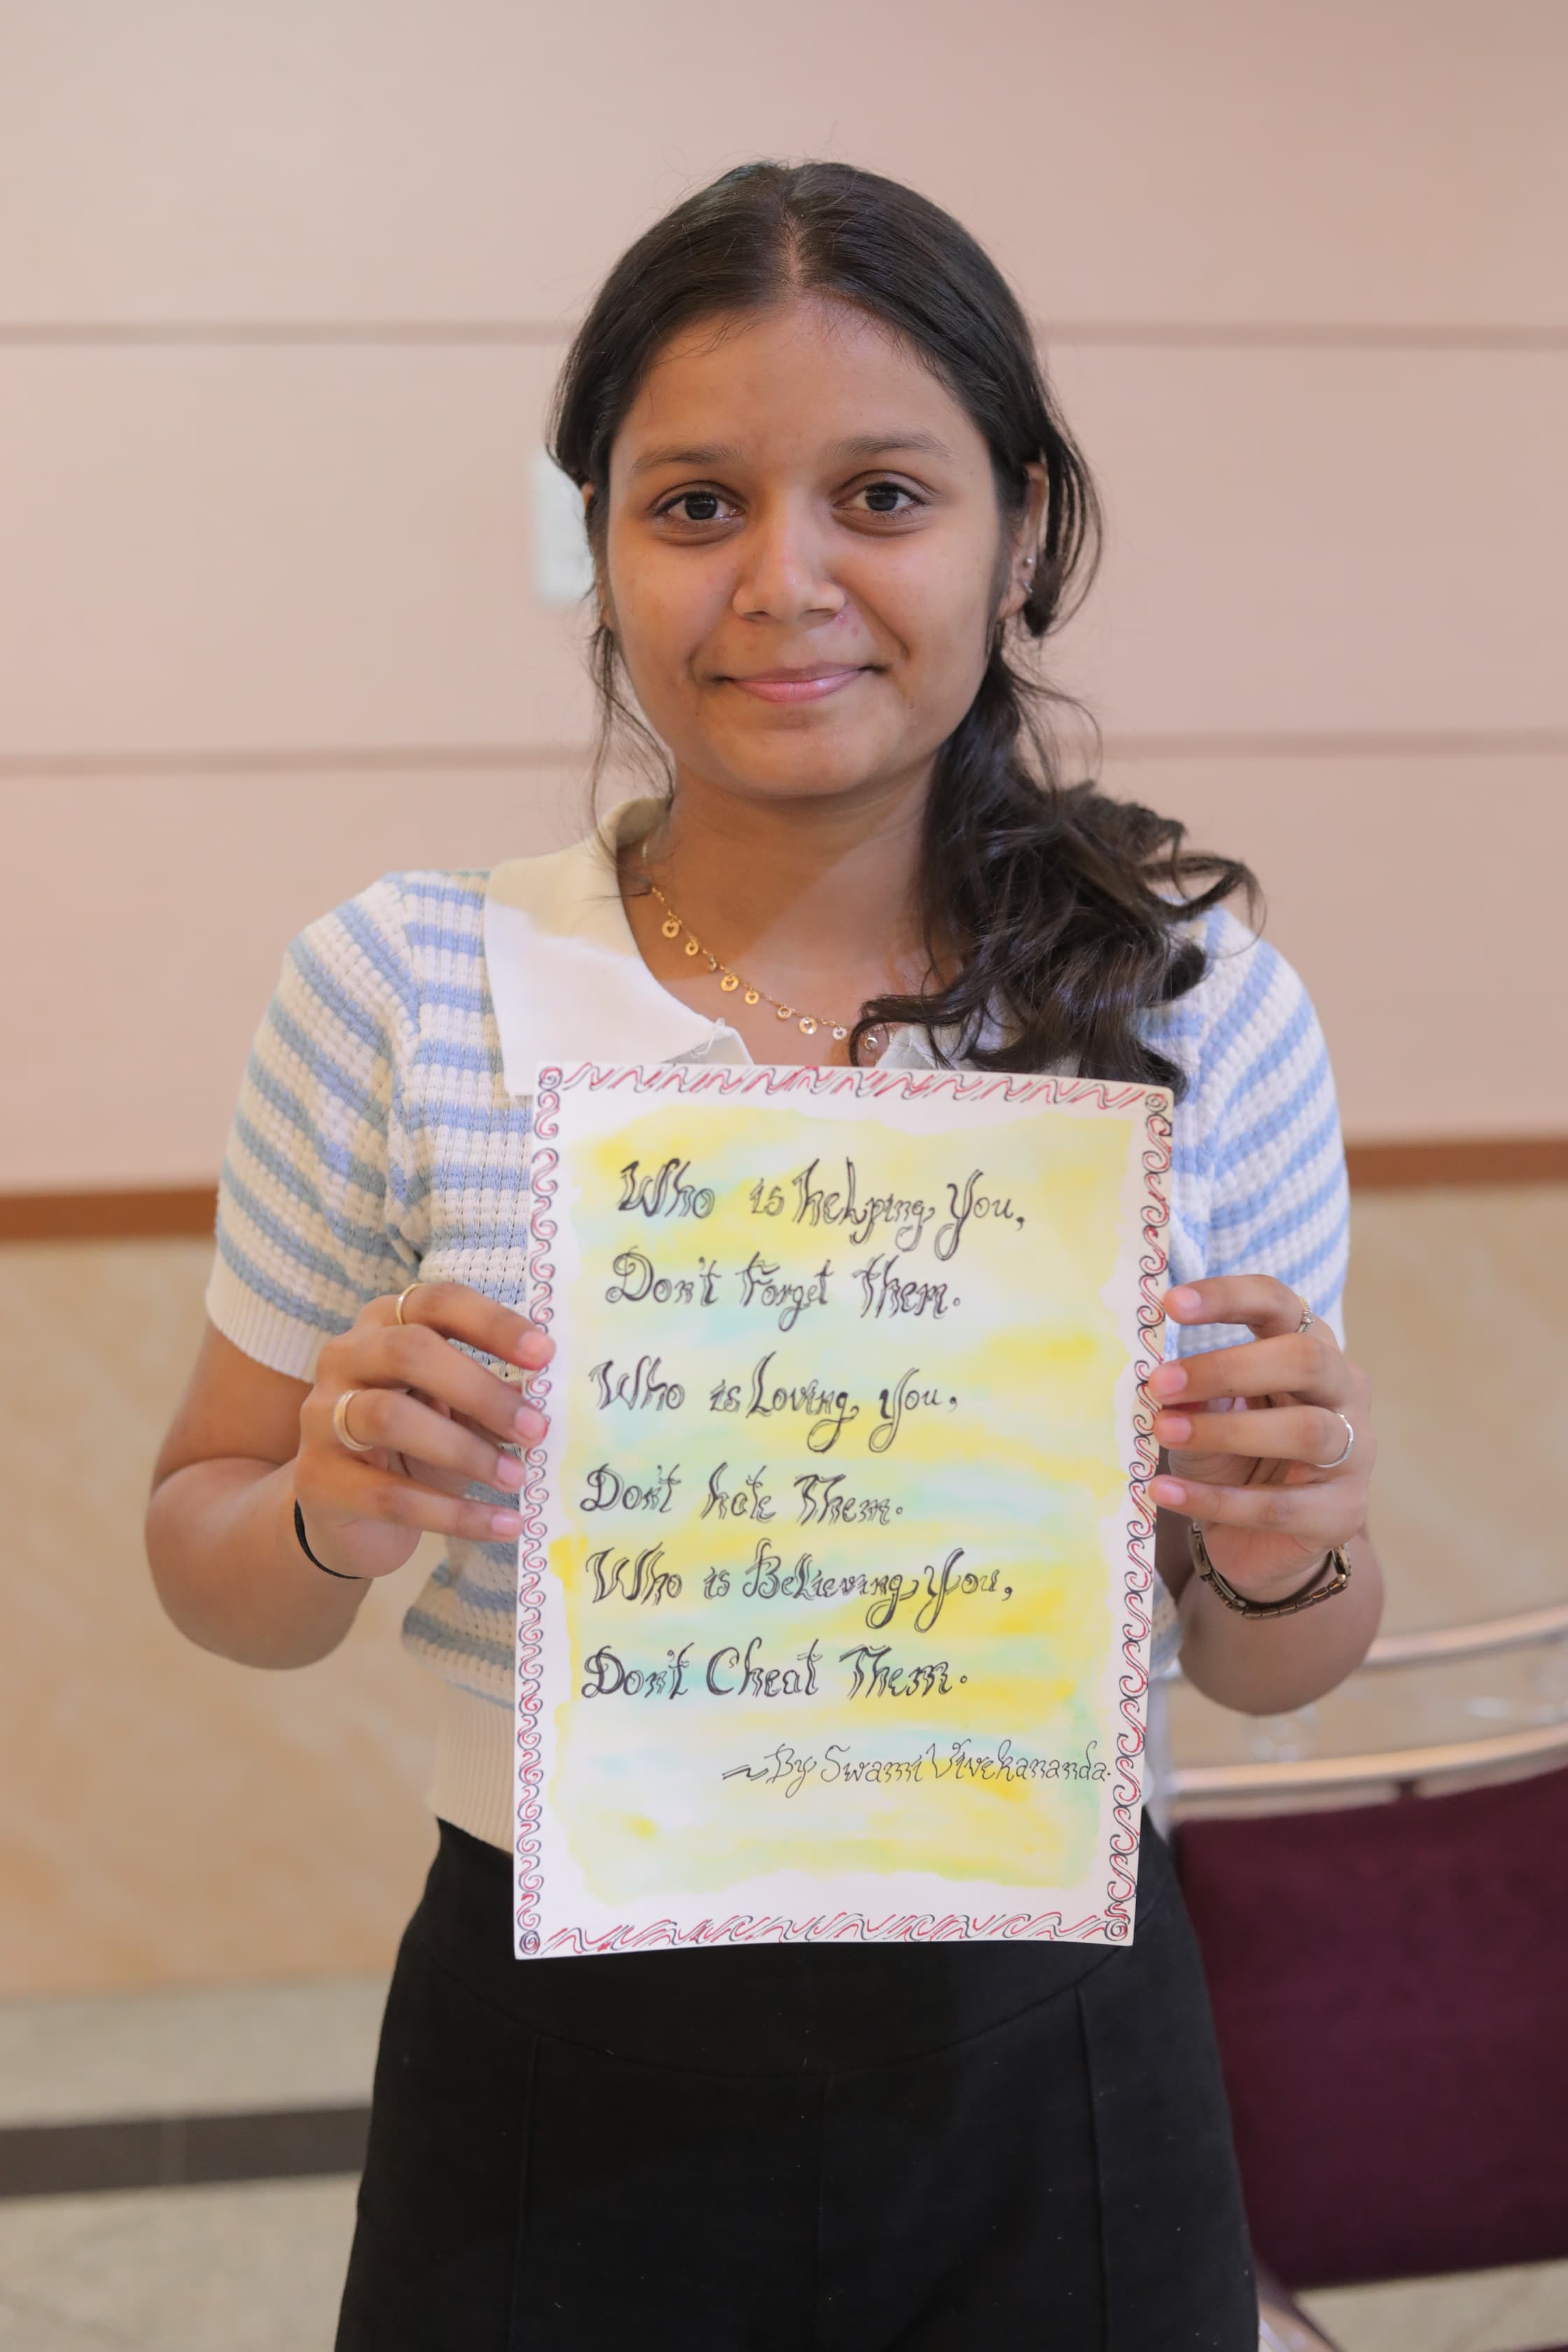 Who is helping You,
Don't Forget Them.
Who is Loving You,
Don't hate Them.
Who is Believing You,
Don't Cheat Them.
~By Swami Vivekananda.